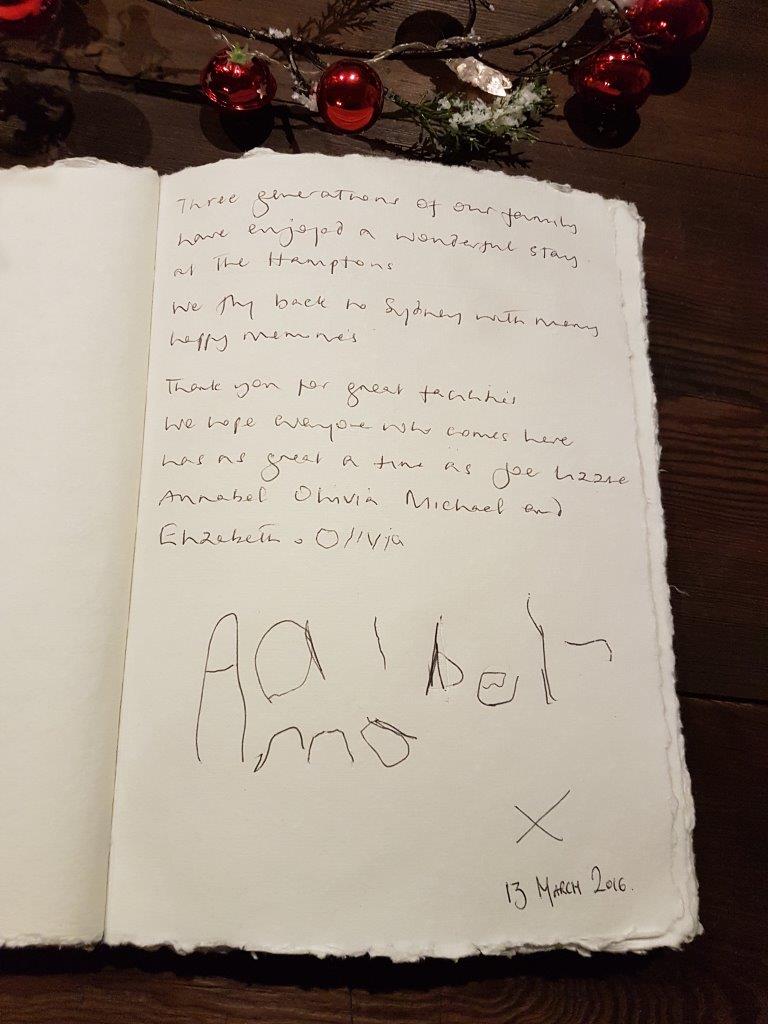 Three generations of our family
have enjoyed a wonderful stay.
at The Hamptons
We fly back to Sydney with many
happy memories
Thank you for great facilities
We hope everyone who comes here
has as great a time as Joe Lizzie
Annabel Olivia Michael and
Elizabeth. Olivia
Anna
X
13 MARCH 2016.